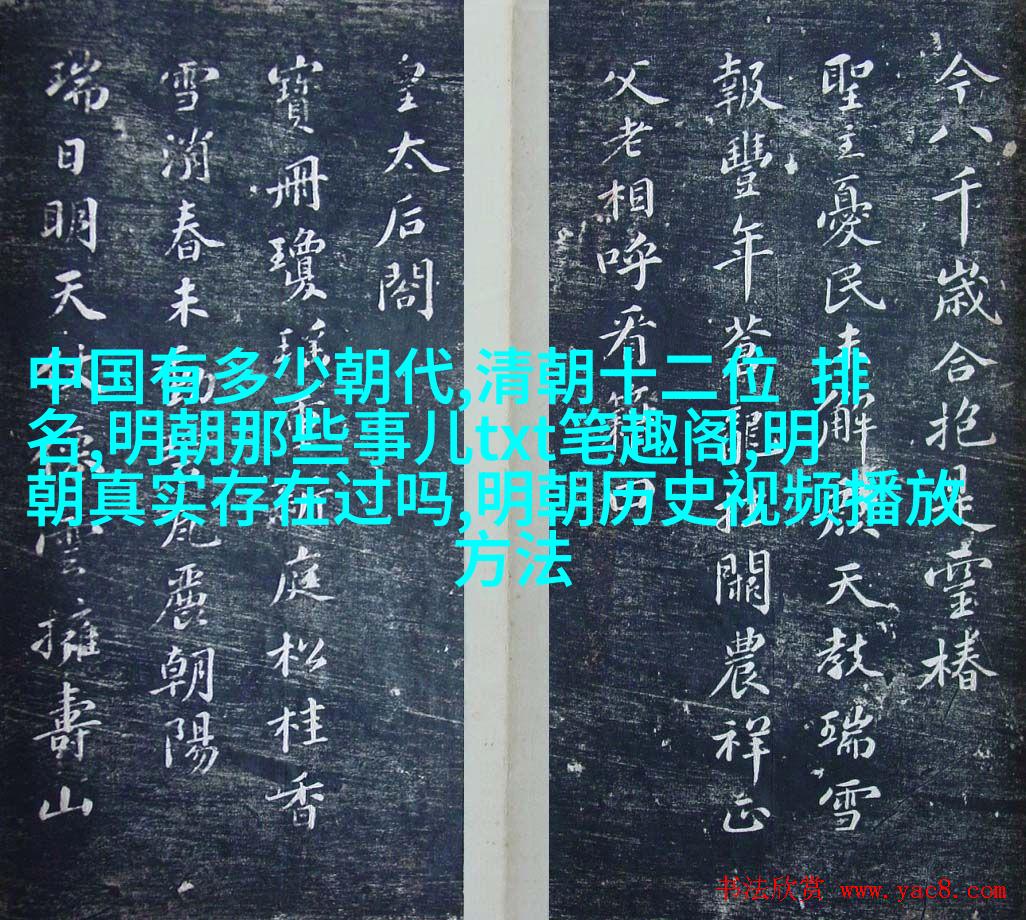 中国有多少朝代,清朝十二位 排
名,明朝那些事儿txt笔趣阁,明
朝真实存在过吗,明朝历史视频播放
方法
今八千歲合抱是靈椿
聖主憂民未解顏天教瑞雪
報豐年蒼龍掛闕農祥正
父老相呼看籍田
皇太后閤
寶冊瓊瑤庭松桂香
雪消春未動瓦麗朝陽
瑞日明天雲擁壽山
书法欣赏 www.yac8.com